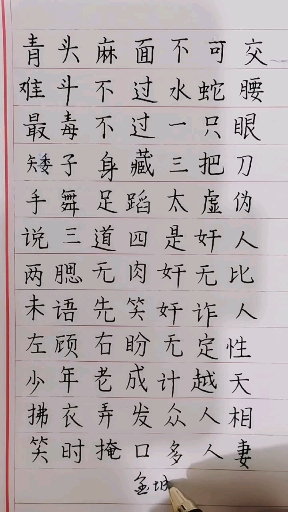 青头麻面不可交
难斗不过水蛇腰
最毒不过一只眼
矮子身藏三把刀
手舞足蹈太虚伪
说三道四是奸人
两腮无肉奸无比
未语先笑奸诈人
左顾右盼无定性
少年老成计越天
拂衣弄发众人相
笑时掩口多人妻
金城